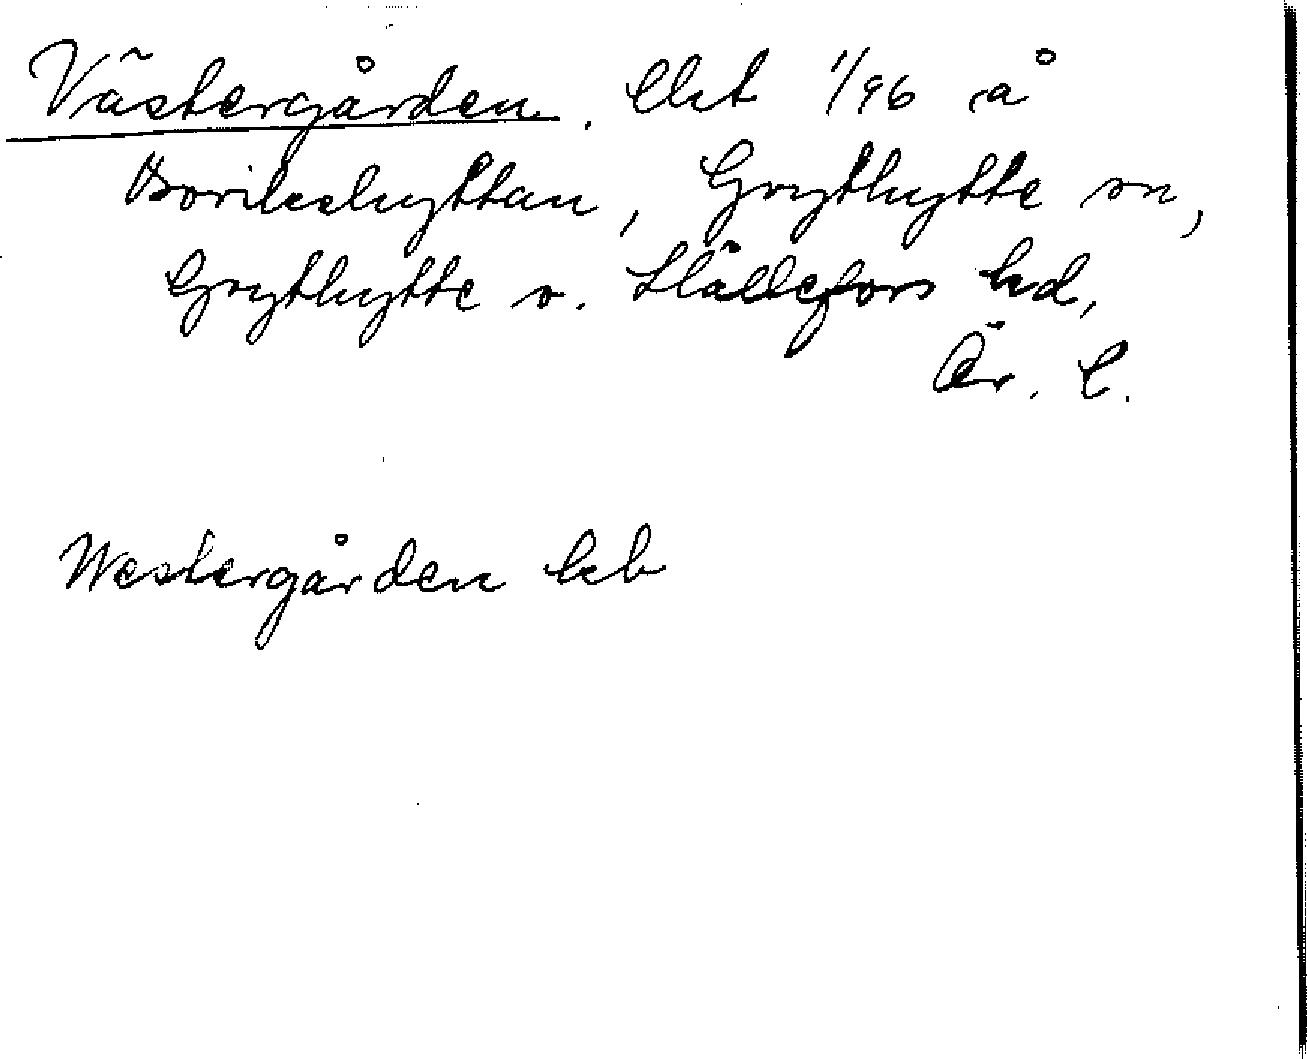 Västergården. Lht 1/96 å
Borikshyttan, Grythytte sn,
Grythytte o. Hällefors hd,
Ör. l.
Westergården hb